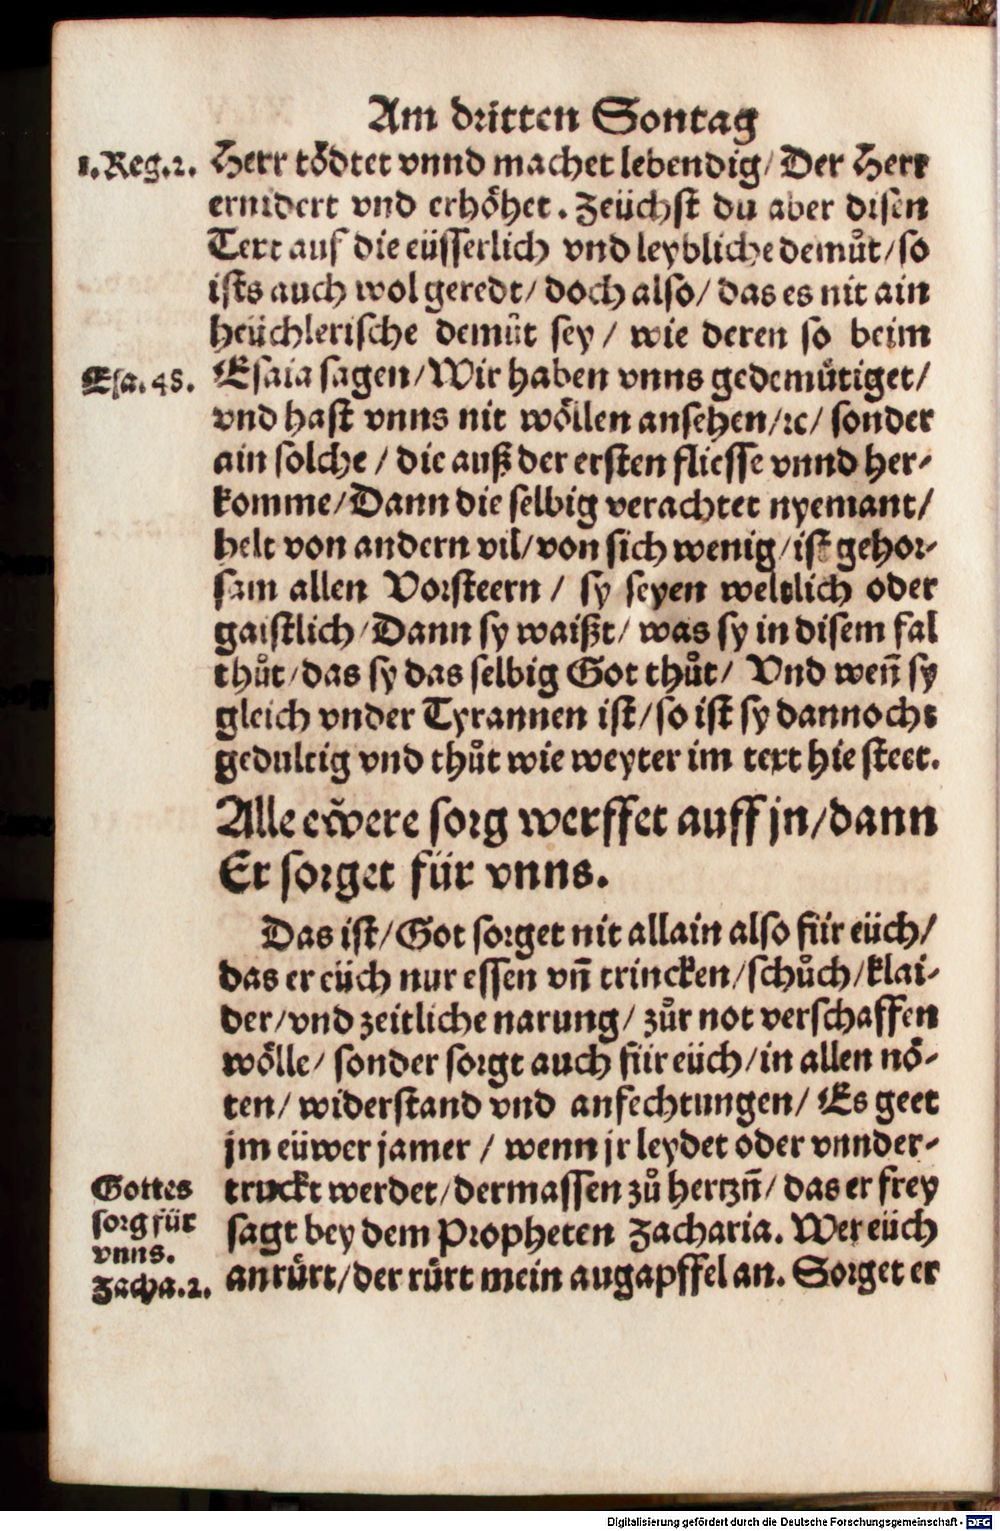 Am dritten Sontag
1.Reg.2. Herr tödtet vnnd machet lebendig/ Der Herr
ernidert vnd erhöhet. Zeüchst du aber disen
Text auf die eüsserlich vnd leybliche demůt/ so
ists auch wol geredt/ doch also/ das es nit ain
heüchlerische demůt sey/ wie deren so beim
Esa.48. Esaia sagen/ Wir haben vnns gedemütiget/
vnd hast vnns nit wöllen ansehen/ ꝛc/ sonder
ain solche/ die auß der ersten fliesse vnnd her-
komme/ Dann die selbig verachtet nyemant/
helt von andern vil/ von sich wenig/ ist gehor-
sam allen Vorsteern/ sy seyen weltlich oder
gaistlich/ Dann sy waißt/ was sy in disem fal
thůt/ das sy das selbig Got thůt/ Vnd weñ sy
gleich vnder Tyrannen ist/ so ist sy dannocht
gedultig vnd thůt wie weyter im text hie steet.
Alle ewere sorg werffet auff jn/ dann
Er sorget für vnns.
Das ist/ Got sorget nit allain also für eüch/
das er eüch nur essen vñ trincken/ schůch/ klai-
der/ vnd zeitliche narung/ zůr not verschaffen
wölle/ sonder sorgt auch für eüch/ in allen nö-
ten/ widerstand vnd anfechtungen/ Es geet
jm eüwer jamer/ wenn jr leydet oder vnnder-
Gottes truckt werdet/ dermassen zů hertzñ/ das er frey
sorg für sagt bey dem Propheten Zacharia. Wer eüch
vnns.
Zacha.2. anrürt/ der rürt mein augapffel an. Sorget er
Digitalisierung gefördert durch die Deutsche Forschungsgemeinschaft - DFG